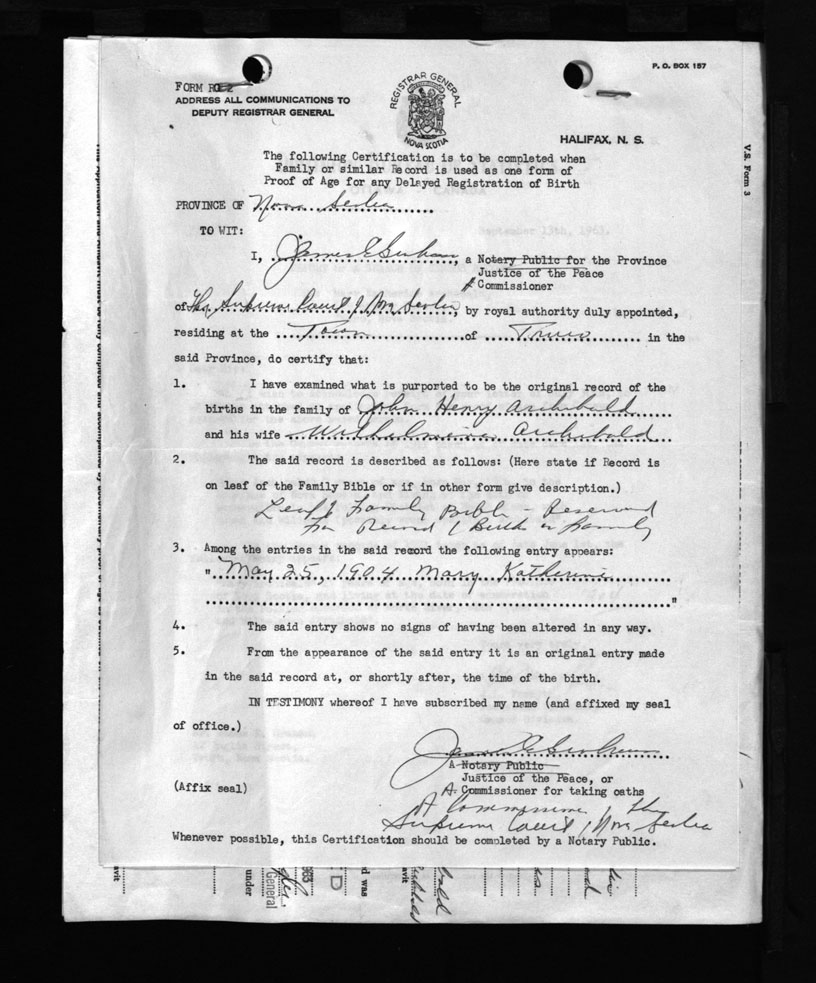 P. O. BOX 157
FORM RG-2
ADDRESS ALL COMMUNICATIONS TO
DEPUTY REGISTRAR GENERAL
REGISTRAR GENERAL
NOVA SCOTIA
HALIFAX, N. S.
V.S. Form 3
The following Certification is to be completed when
Family or similar Record is used as one form of
Proof of Age for any Delayed Registration of Birth
PROVINCE OF Nova Scotia
TO WIT:
I, James E, a Notary Public for the Province
Justice of the Peace
A Commissioner
of The Supreme Court of Nova Scotia, by royal authority duly appointed,
residing at the Town of Truro in the
said Province, do certify that:
1. I have examined what is purported to be the original record of the
births in the family of John Henry Archibald
and his wife Wilhelmina Archibald
2. The said record is described as follows: (Here state if Record is
on leaf of the Family Bible or if in other form give description.)
Leaf of Family Bible - Reserved
for Record of Birth in Family
3. Among the entries in the said record the following entry appears:
" May 25, 1904 Mary Katherine
"
4. The said entry shows no signs of having been altered in any way.
5. From the appearance of the said entry it is an original entry made
in the said record at, or shortly after, the time of the birth.
IN TESTIMONY whereof I have subscribed my name (and affixed my seal
of office.)
James E
A Notary Public
Justice of the Peace, or
(Affix seal) A Commissioner for taking oaths
A Commissioner of the
Supreme Court of Nova Scotia
Whenever possible, this Certification should be completed by a Notary Public.
avit
under
General
1963
D
d was
avit
bald